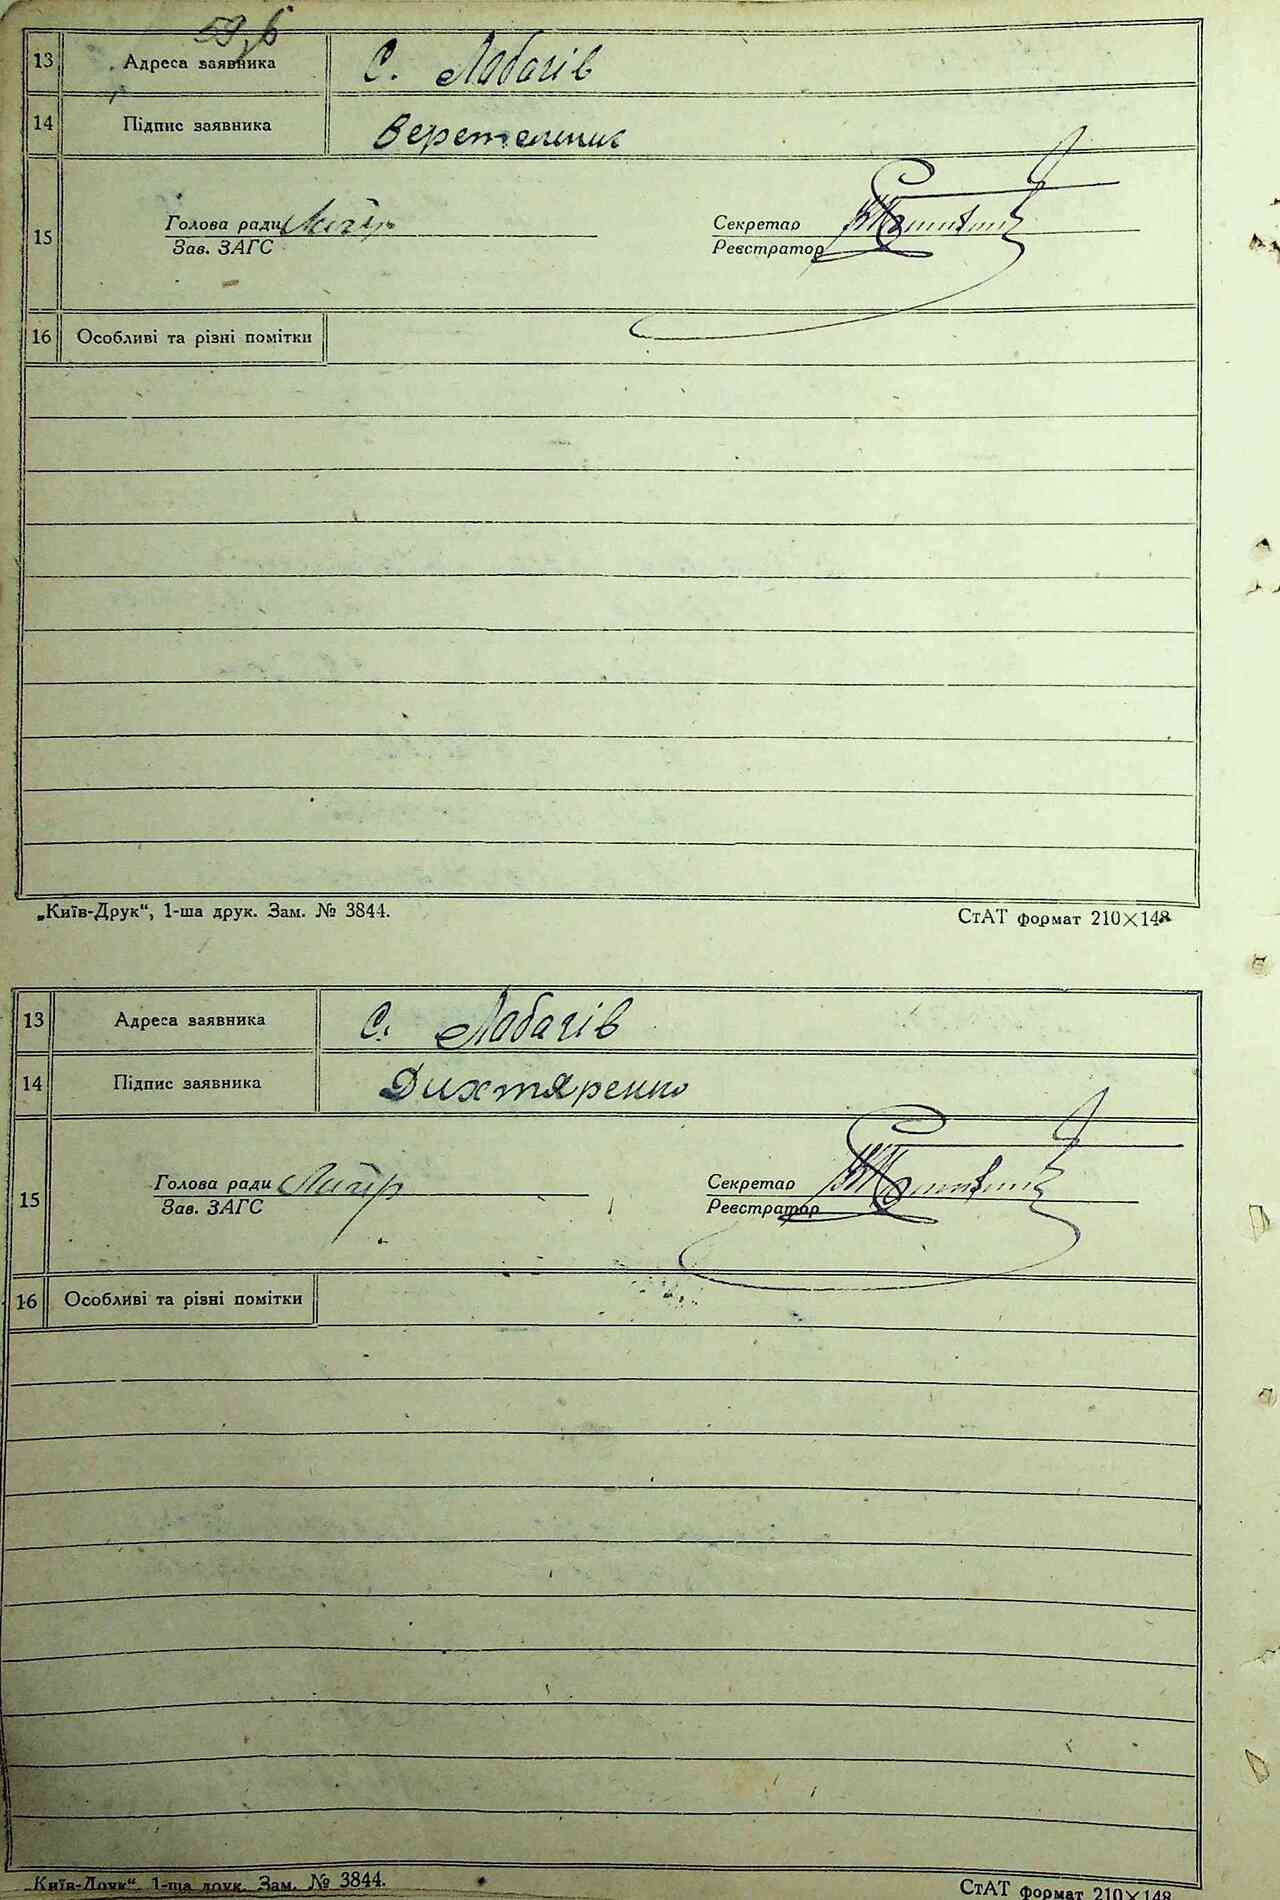 59,б
13 Адреса заявника С. Лобачів
14 Підпис заявника Веретельник
15 Голова ради Секретар
Зав. ЗАГС Реєстратор
16 Особливі та різні помітки
„Київ-Друк“, 1-ша друк. Зам. № 3844. СтАТ формат 210×148
13 Адреса заявника С. Лобачів
14 Підпис заявника Дихтяренко
15 Голова ради Секретар
Зав. ЗАГС Реєстратор
16 Особливі та різні помітки
„Київ-Друк“, 1-ша друк. Зам. № 3844. СтАТ формат 210×148